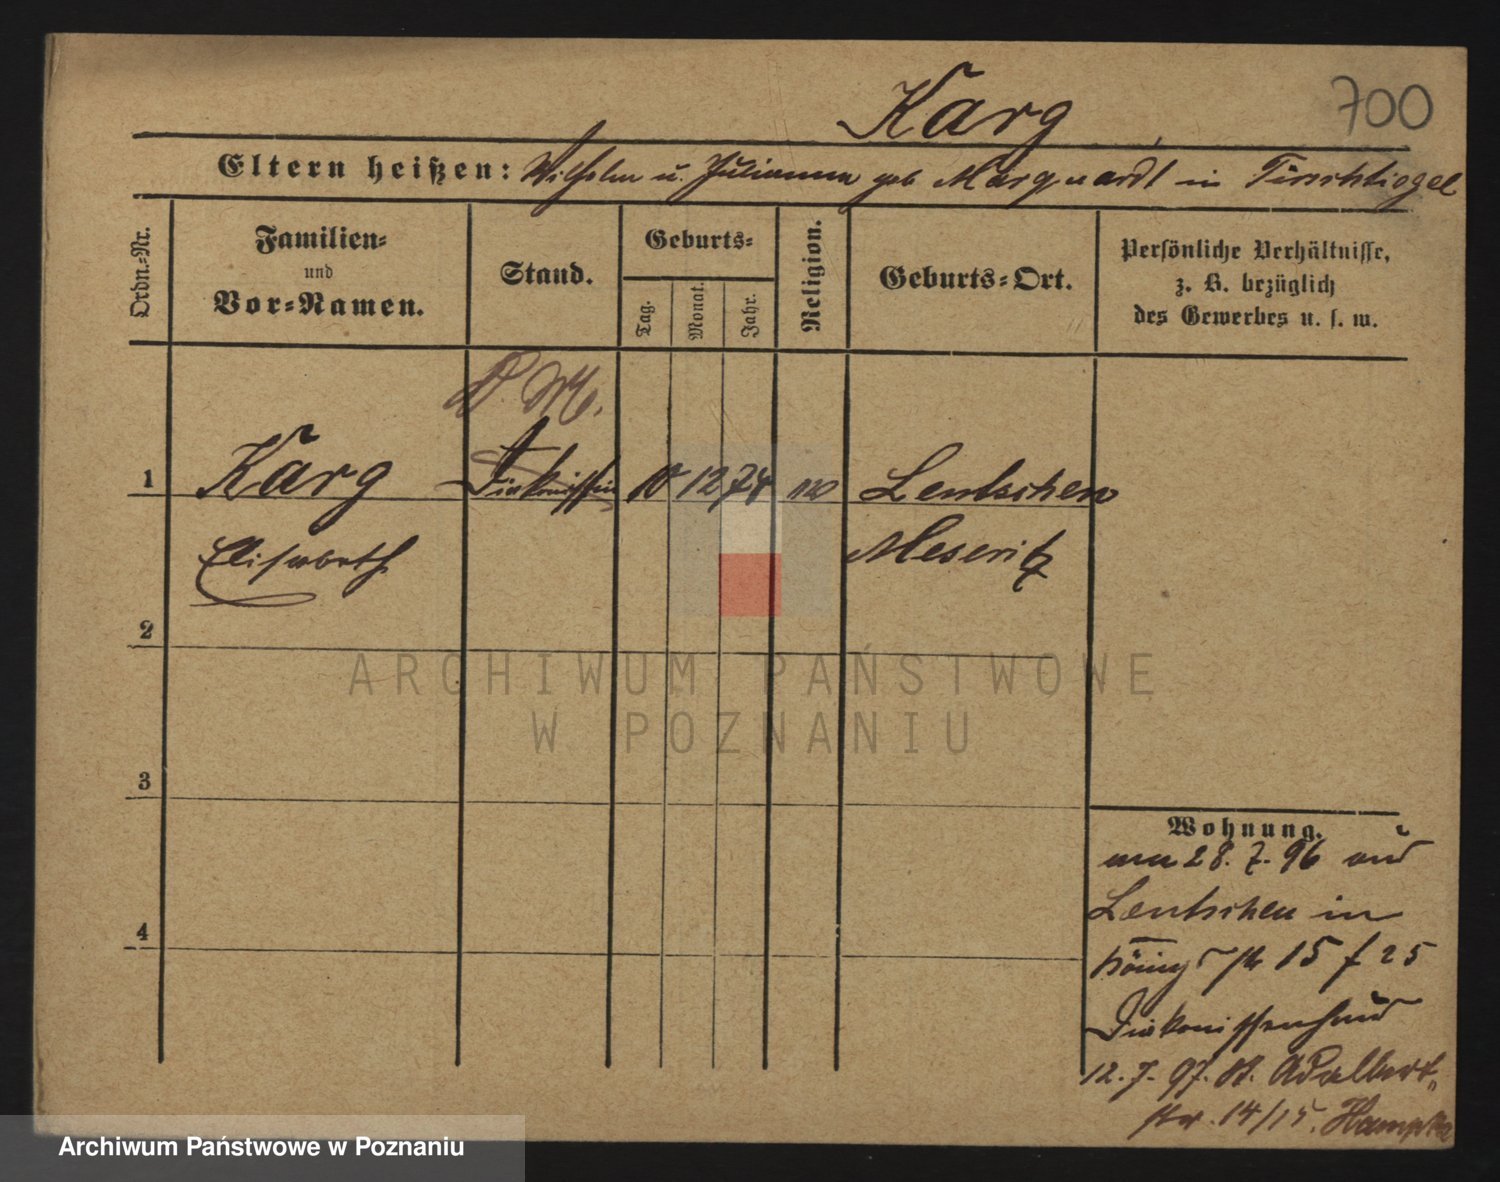 Karg 700
Eltern heißen: Wilhelm u. Julianna geb Marquardt in Tirschtiegel
Ordn.-Nr.
Familien-
und
Vor-Namen.
Stand.
Geburts-
Tag.
Monat.
Jahr.
Religion.
Geburts-Ort.
Persönliche Verhältnisse,
z. B. bezüglich
des Gewerbes u. s. w.
D. M.
1 Karg Diakonissin 10 12 74 Lentschen
Elisabeth Meseritz
2
3
4
ARCHIWUM PAŃSTWOWE
W POZNANIU
Wohnung.
28. 7. 96 aus
Lentschen in
Königstr 15 f 25
Diakonissenhaus
12. 7. 97. St. Adalbert-
str. 14/15.
Archiwum Państwowe w Poznaniu